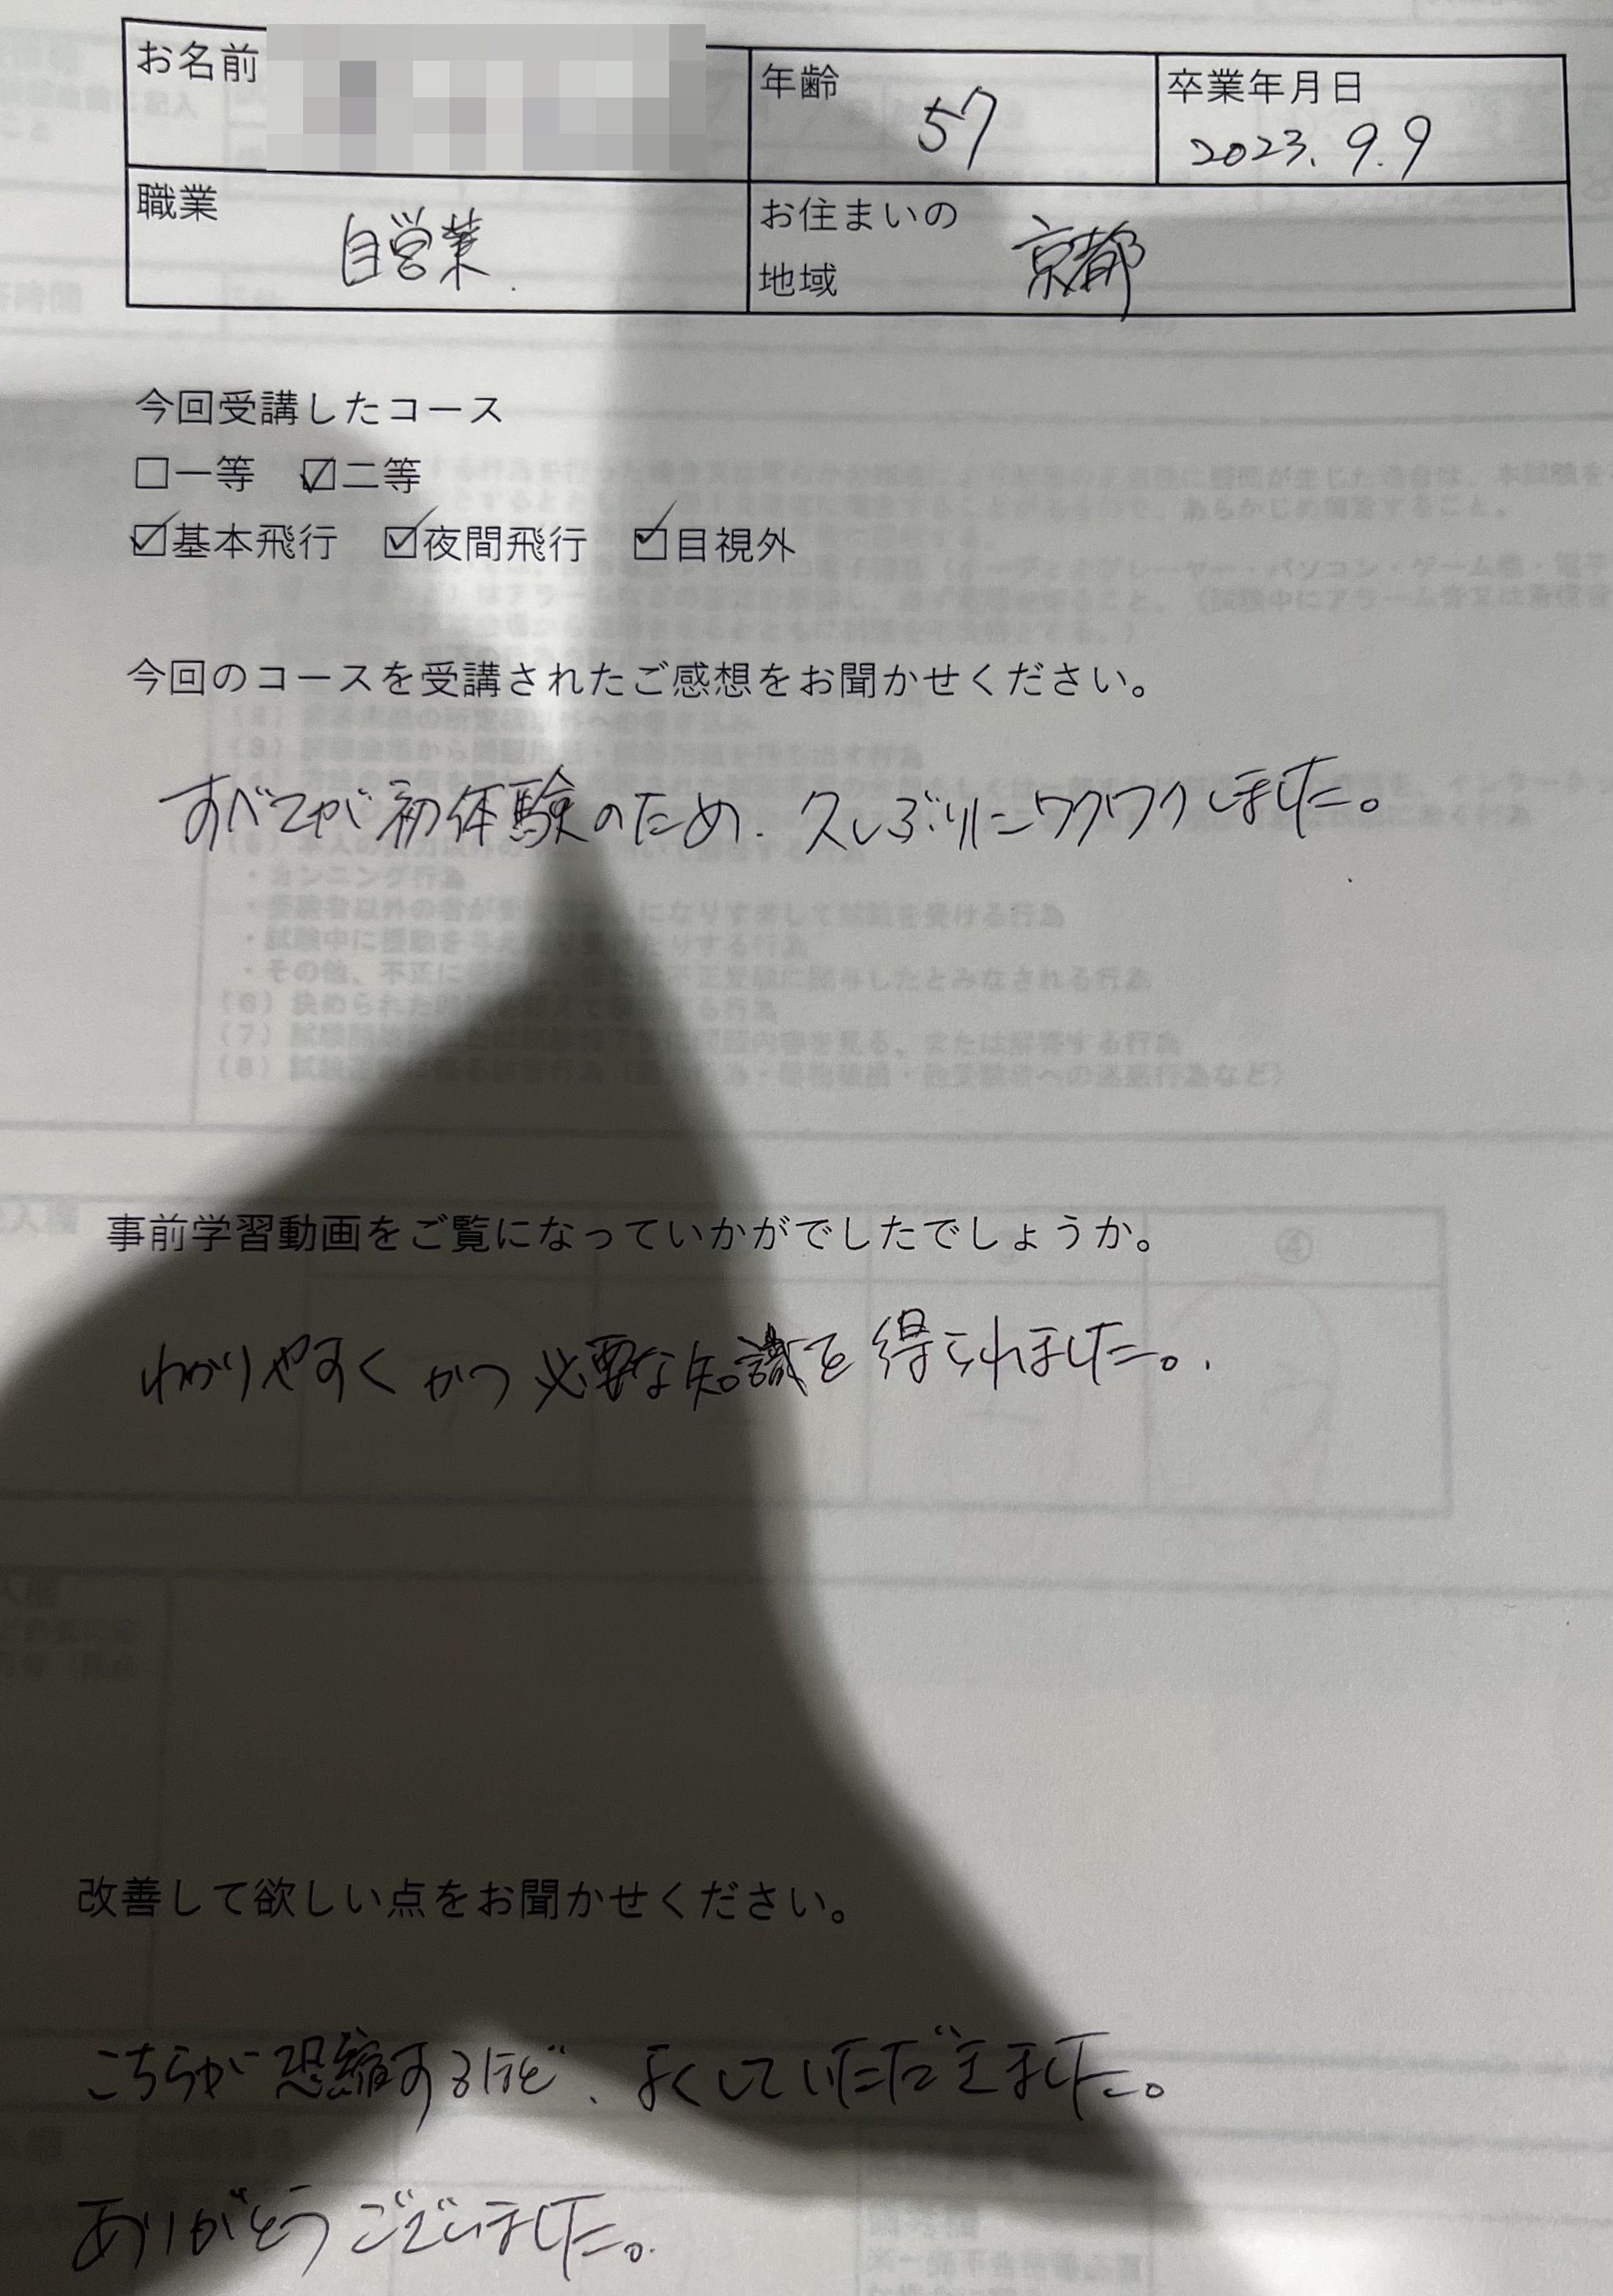 お名前
年齢
57
卒業年月日
2023.9.9
職業
自営業
お住まいの
地域
京都
今回受講したコース
□一等 ☑二等
☑基本飛行 ☑夜間飛行 ☑目視外
今回のコースを受講されたご感想をお聞かせください。
すべてが初体験のため、久しぶりにワクワクしました。
事前学習動画をご覧になっていかがでしたでしょうか。
わかりやすくかつ必要な知識を得られました。
改善して欲しい点をお聞かせください。
こちらが恐縮するほど、よくしていただきました。
ありがとうございました。